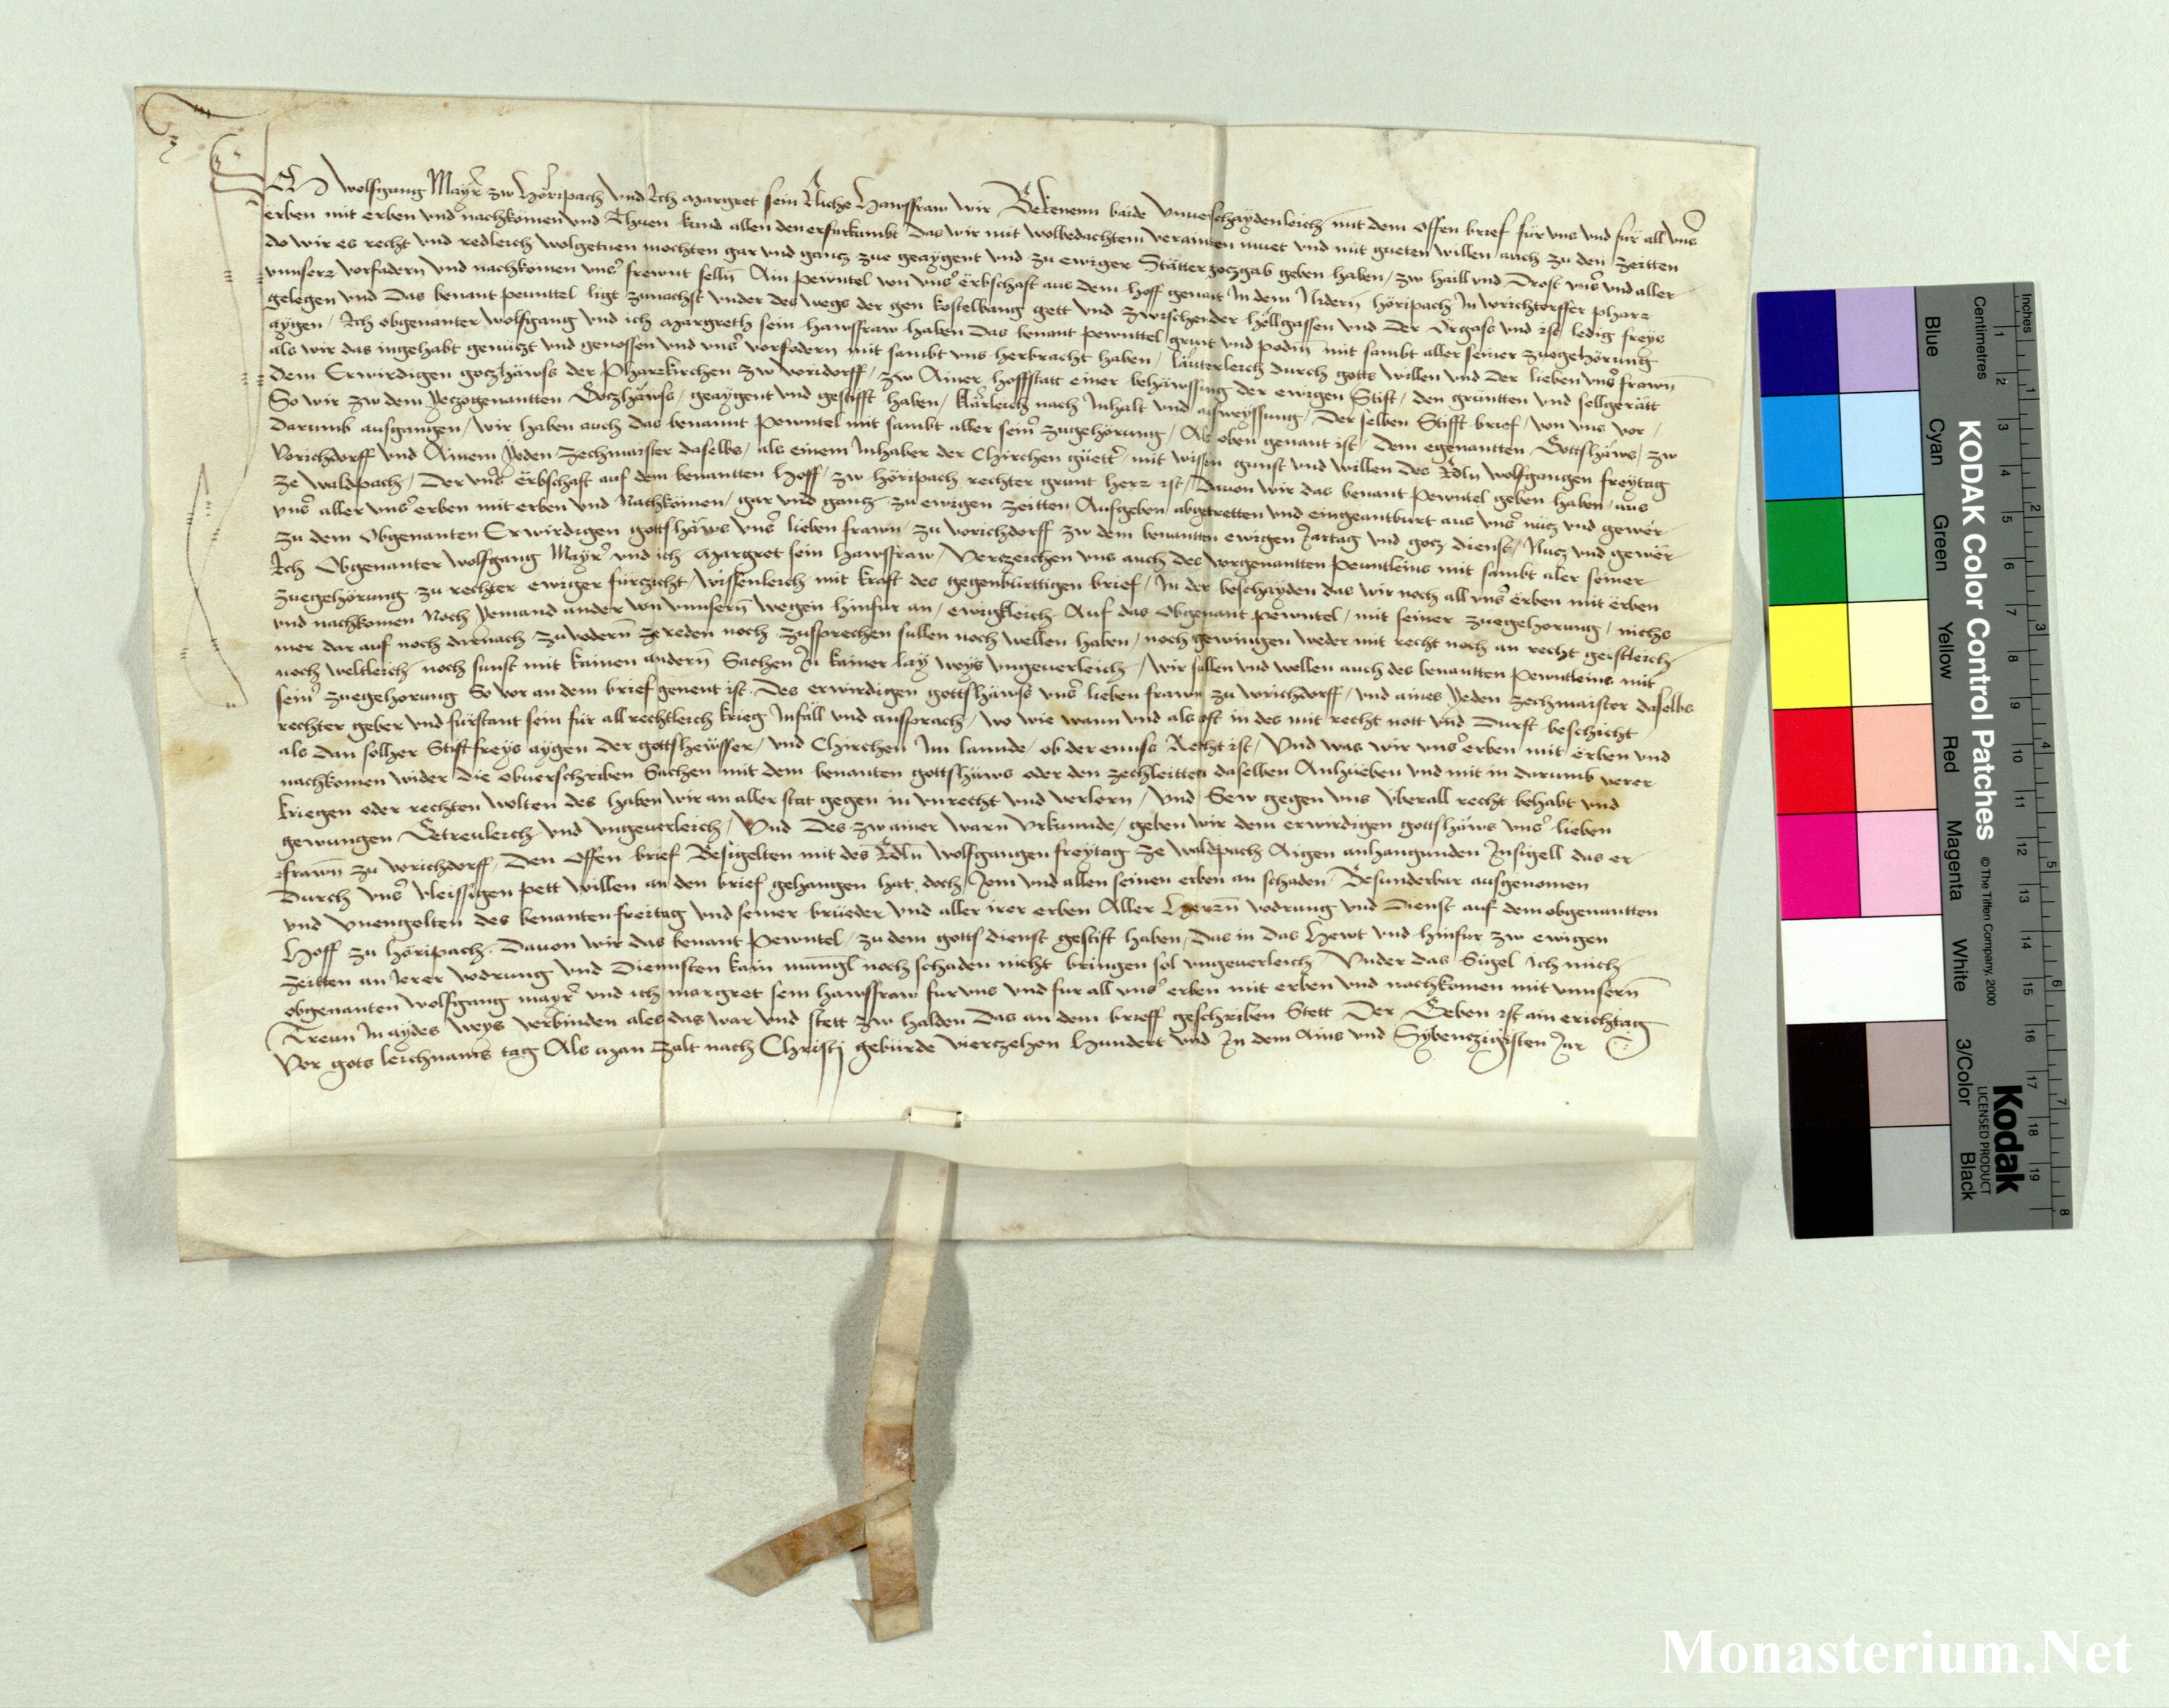 Ich wolfgang Mayr zw Höripach vnd Ich margret sein Eliche Hawssfraw wir Bekenenn baide vnuerschaydenleich mit dem offen brief für vns vnd für all vnns
erben mit erben vnd nachkomen vnd Thuen kund allen den er fürkumbt Das wir mit wolbedachtem verainten muet vnd mit gueten willen auch zu den zeitten
do wir es recht vnd redleich wolgetuen mochten gar vnd gancz zue geaygent vnd zu ewiger Stätter goczgab geben haben / zw haill vnd Drost vns vnd aller
vnnserr vorfadern vnd nachkömen vns frewnt selln Ain pewntel von vns Erbschaft aus dem hoff genant In dem Nidern höripach In vorichtorffer pharr
gelegen vnd Das benant peunttel ligt zunachst vnder des wegs der gen kostelbang gett vnd zwischen der höllgassen vnd der Ürgass vnd ist ledig freys
aygen / Ich obgenanter wolfgang vnd ich margreth sein hawssfraw haben Das benant pewnttel grunt vnd podm mit sambt aller seiner zuegehörung
als wir das ingehabt genüczt vnd genossen vnd vns vorfodern mit sambt vns herbracht haben / läuterleich durch gotts willen vnd der lieben vns frawn
dem Erwirdigen goczhäwss der Pharkirchen zw voridorff / zw Ainer hoffstatt einer behäwssing der ewigen Stift / den gruntten vnd sellgerätt
So wir zw dem yeczogenantten Goczhäwss / geaygent vnd gestifft haben / klärleich nach Inhalt vnd ausweyssung / Der selben Stifft brief / von vns vor /
darumb ausgangen / wir haben auch das benannt Pewntel mit sambt aller seinr zugehorung / Als oben genant ist / Dem egenantten Gottshäws / zw
Vorichdorff vnd Ainem yeden zechmaister daselbs / als einem Inhaber der Chirchen güetter / mit wissen gunst vnd willen des Edln wolfgangen freytag
ze waldpach / Der vns erbschaft auf dem benantten hoff / zw höripach rechter grunt herr ist / Dauon wir das benant pewntel geben haben / aus
vns aller vns erben mit erben vnd Nachkömen / gar vnd gancz zu ewigen zeitten Aufgeben abgetretten vnd eingeantburt aus vns nucz vnd gewer
zu dem Obgenanten Erwirdigen gottshäws vns lieben frawn / zu vorichdorff zw dem benantten ewigen Jartag vnd gocz dienst / Nucz vnd gewer
Ich Obgenanter wolfgang Mayr vnd ich margret sein hawssfraw / Verczeichen vns auch des vorgenantten peuntleins mit sambt aler seiner
zuegehörung zu rechter ewiger fürzicht / wissenleich mit kraft des gegenbürttigen brief / In der beschayden das wir noch all vns erben mit erben
vnd nachkomen Noch yemand ander von vnnsern wegen hinfur an / ewigkleich Auf das Obgenant pewntel / mit seiner zuegehorung / nichs
mer dar auf noch darnach zu vodern ze reden noch zusprechen sullen noch wellen haben / noch gewingen weder mit recht noch an recht geistleich
noch weltleich noch sunst mit kainen andern Sachen In kainer lay weys vngeuerleich / wir sullen vnd wellen auch des benantten pewntleins mit
seinr zuegehorung So vor an dem brief genent ist Des erwirdigen gottshäwss vns lieben frawn zu vorichdorff / vnd aines yeden zechmaister daselbs
rechter geber vnd fürstant sein für all rechtleich krieg Infäll vnd ansprach / wo wie wann vnd als oft in des mit recht nott vnd Durft beschicht
als dan solher Stift freys aygen der gottshewsser / vnd Chirchen Im lannde / ob der ennss Recht ist / Vnd was wir vns erben mit erben vnd
nachkomen wider die obuerschriben Sachen mit dem benanten gottshäws oder den zechleitten daselben Anhueben vnd mit in darumb verer
kriegen oder rechten wolten des haben wir an aller stat gegen in vnrecht vnd verlorn / Vnd Sew gegen vns vberall recht behabt vnd
gewungen Getreuleich vnd vngeuerleich / Vnd Des zw ainer warn vrkunnde / geben wir dem erwirdigen gottshäws vns lieben
frawn zu vorichdorff / Den offen brief Besigelten mit des Edln wolfgangen freytag ze waldpach Aigen anhangunden Insigell das er
Durch vns vleissigen pett willen an den brief gehangen hat / doch Jem vnd allen seinen erben an schaden / Besunderbar ausgenomen
vnd vnengolten des benanten freitag vnd seiner brüeder vnd aller irer erben Aller herrn vodrung vnd Dienst auf dem obgenantten
Hoff zu höripach / Dauon wir das benant pewntel / zu dem gotts dienst gestift haben / das in das hewt vnd hinfur zw ewigen
zeitten an Jerer vodrung vnd Diennsten kain mangl noch schaden nicht bringen sol vngeuerleich / Vnder das Sigel Ich mich
obgenanten wolfgang mayr vnd ich margret sein hawssfraw fur vns vnd fur all vns erben mit erben vnd nachkomen mit vnnsern
Treun In aydes weys verbinden ales das war vnd stett zw halden Das an dem brieff geschriben Stett Der Geben ist am erichtag
Vor gots leichnams tag Als man zalt nach Christj gebürde vierczehen Hundert vnd In dem Ains vnd Sybenczigisten Jar
KODAK Color Control Patches © The Tiffen Company, 2000
Kodak
LICENSED PRODUCT
Blue Cyan Green Yellow Red Magenta White 3/Color Black
Inches 1 2 3 4 5 6 7 8
Centimetres 1 2 3 4 5 6 7 8 9 10 11 12 13 14 15 16 17 18 19
Monasterium.Net